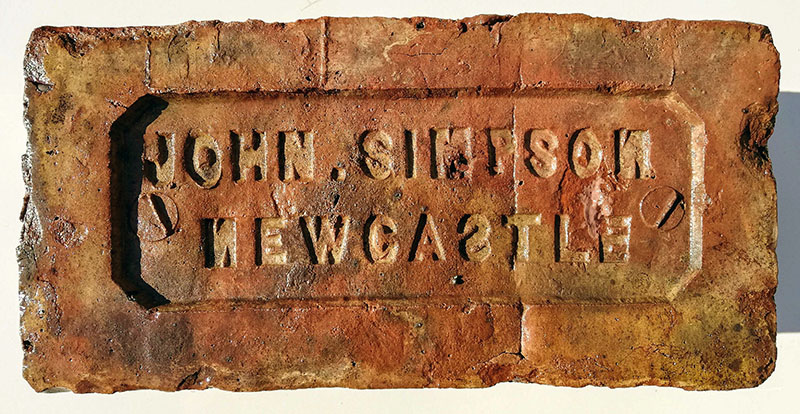 JOHN. SIMPSON
NEWCASTLE